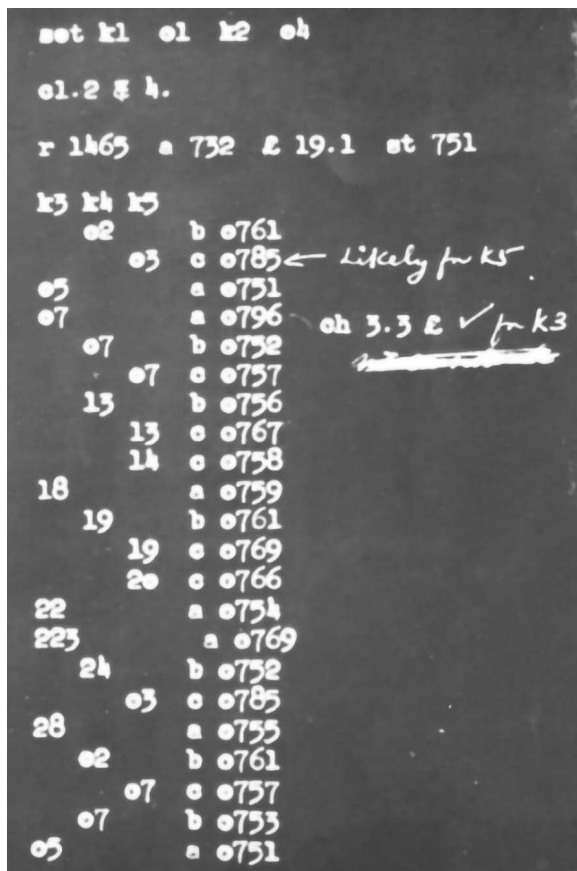 set k1 o1 k2 o4
c1.2 & 4.
r 1465 a 732 £ 19.1 st 751
k3 k4 k5
o2 b o761
o3 c o785 ← Likely for K5.
o5 a o751
o7 a o796 ch 3.3 £ ✓ for K3
o7 b o752
o7 c o757
13 b o756
13 c o767
14 c o758
18 a o759
19 b o761
19 c o769
2o c o766
22 a o754
223 a o769
24 b o752
o3 c o785
28 a o755
o2 b o761
o7 c o757
o7 b o753
o5 a o751